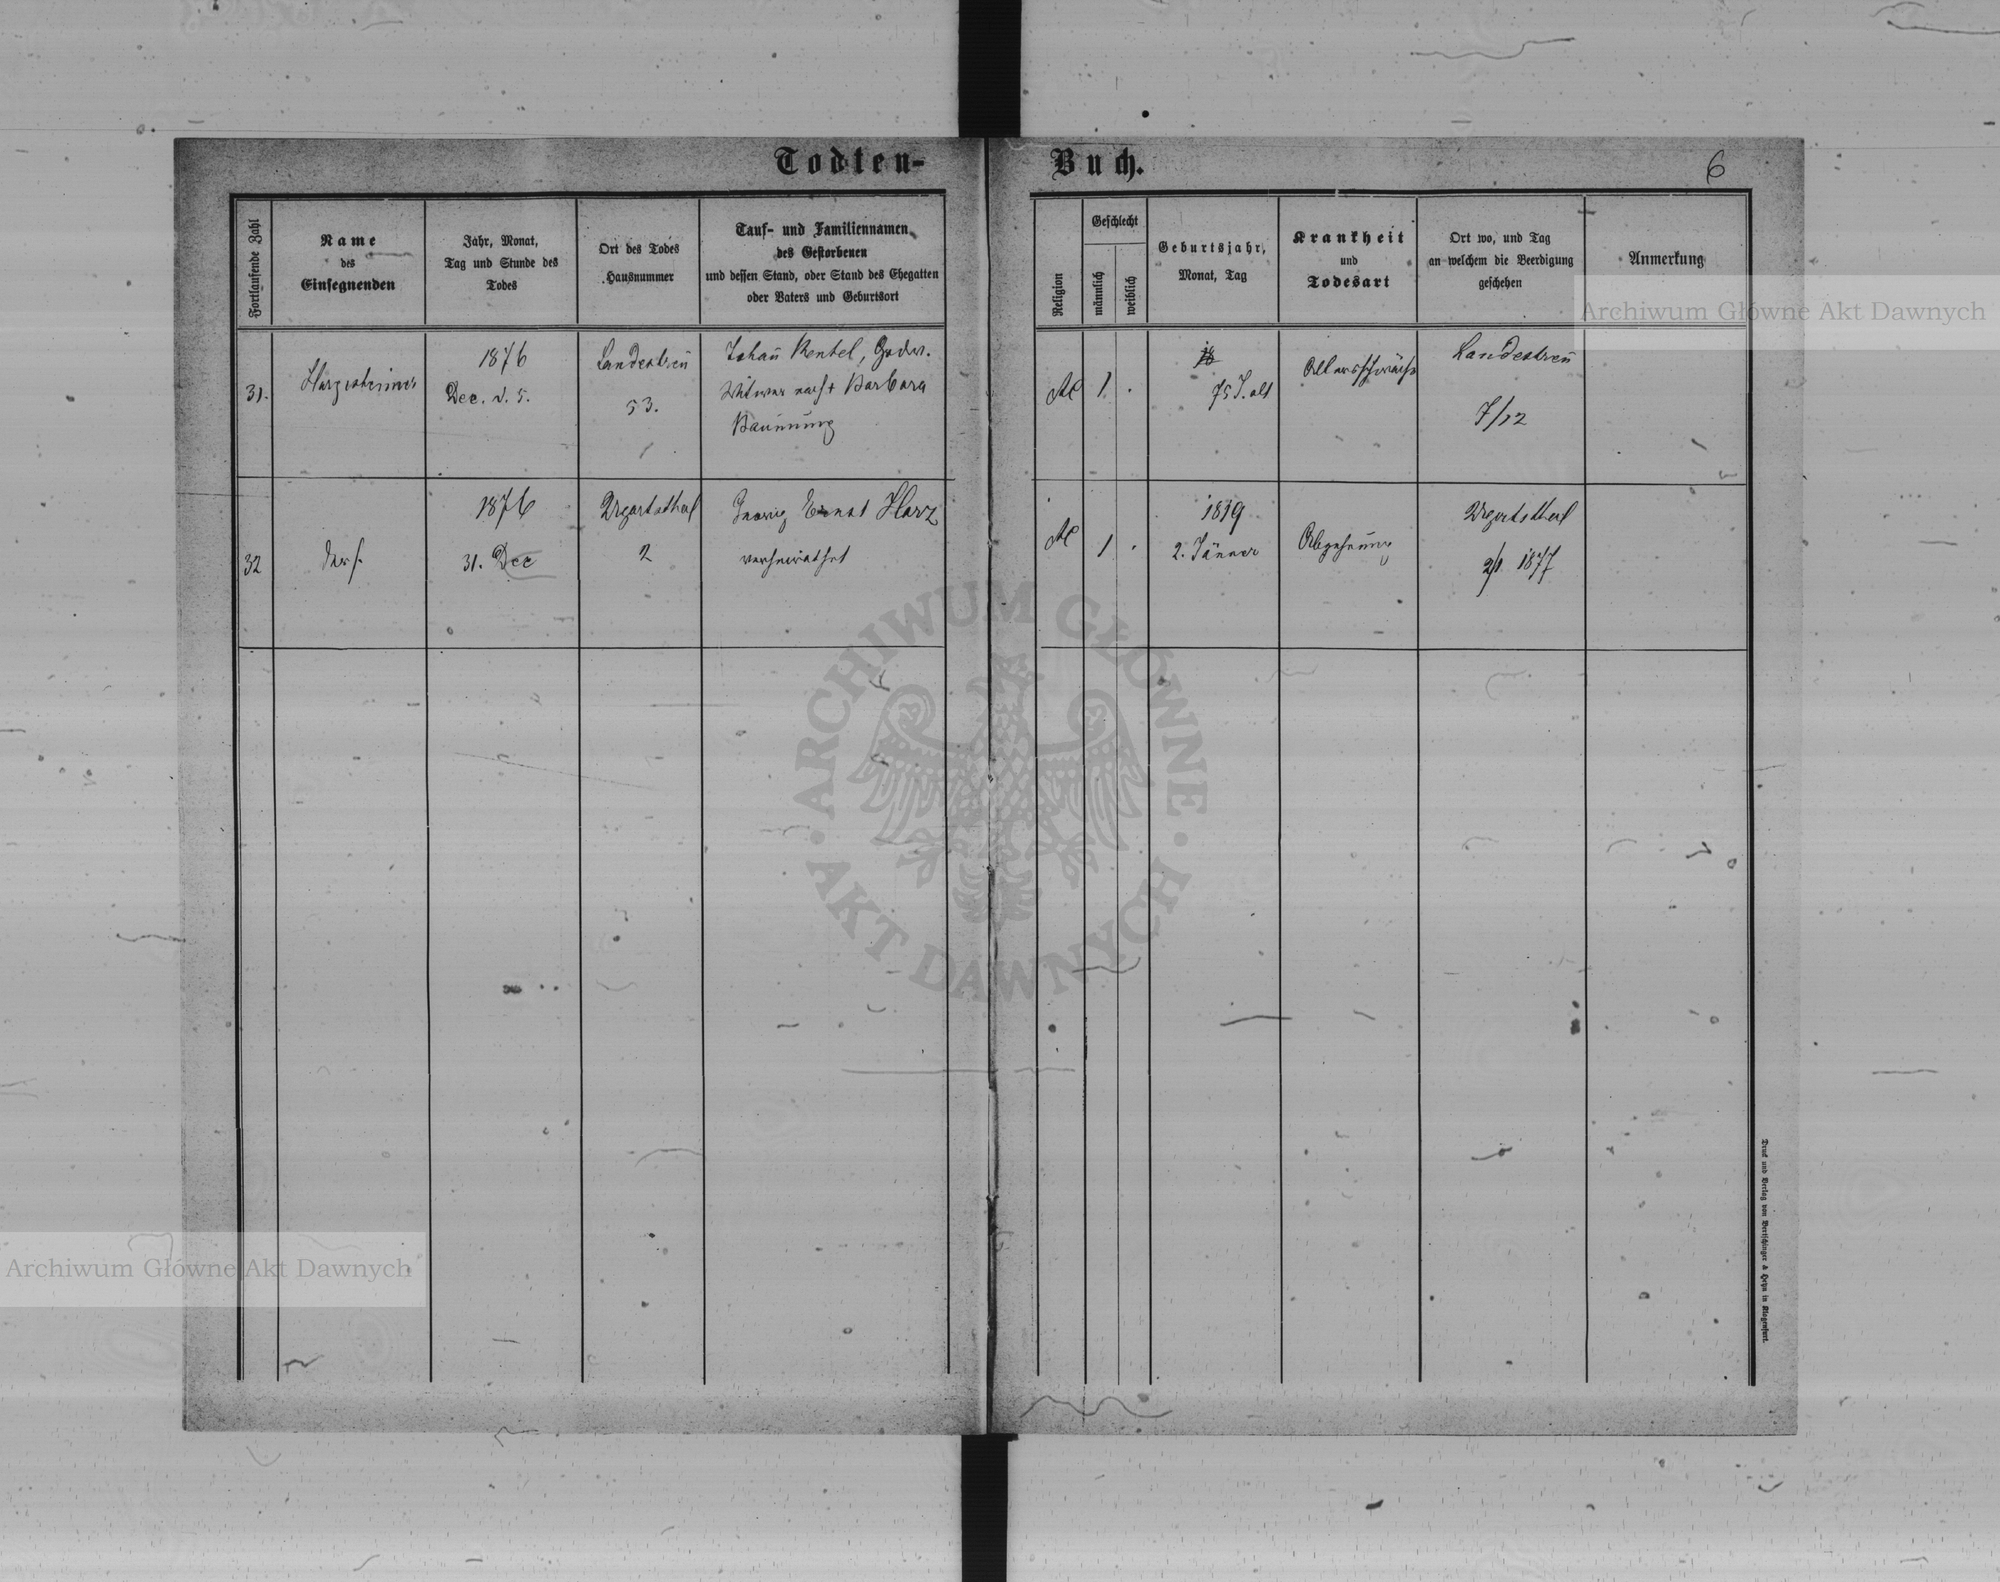 Todten-Buch.
6
Fortlaufende Zahl
Name
des
Einsegnenden
Jahr, Monat,
Tag und Stunde des
Todes
Ort des Todes
Hausnummer
Tauf- und Familiennamen
des Gestorbenen
und dessen Stand, oder Stand des Ehegatten
oder Vaters und Geburtsort
Religion
Geschlecht
männlich
weiblich
Geburtsjahr,
Monat, Tag
Krankheit
und
Todesart
Ort wo, und Tag
an welchem die Beerdigung
geschehen
Anmerkung
31.
Hargesheimer
1876
Dec. d. 5.
Landestreu
53.
Johann Rentel,
Witwer nach † Barbara
AC
1
.
75 J. alt
Altersschwäche
Landestreu
7/12
32
ders.
1876
31. Dec
Ugartsthal
2
Ernst Harz
verheirathet
AC
1
.
1819
2. Jänner
Abzehrung
Ugartsthal
2/1 1877
Druck und Verlag von Bertschinger & Heyn in Klagenfurt.
Archiwum Główne Akt Dawnych
ARCHIWUM GŁÓWNE · AKT DAWNYCH ·
Archiwum Główne Akt Dawnych